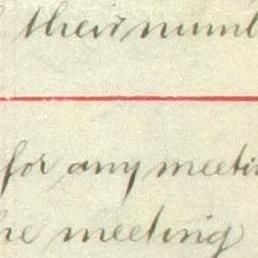 their numb
for any meeti
he meeting